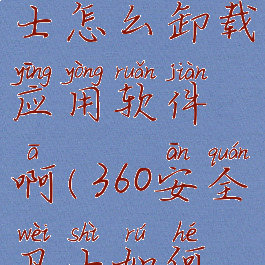 士怎么卸载
yīng yòng ruǎn jiàn
应用软件
ā ān quán
啊(360安全
wèi shì rú hé
卫士如何